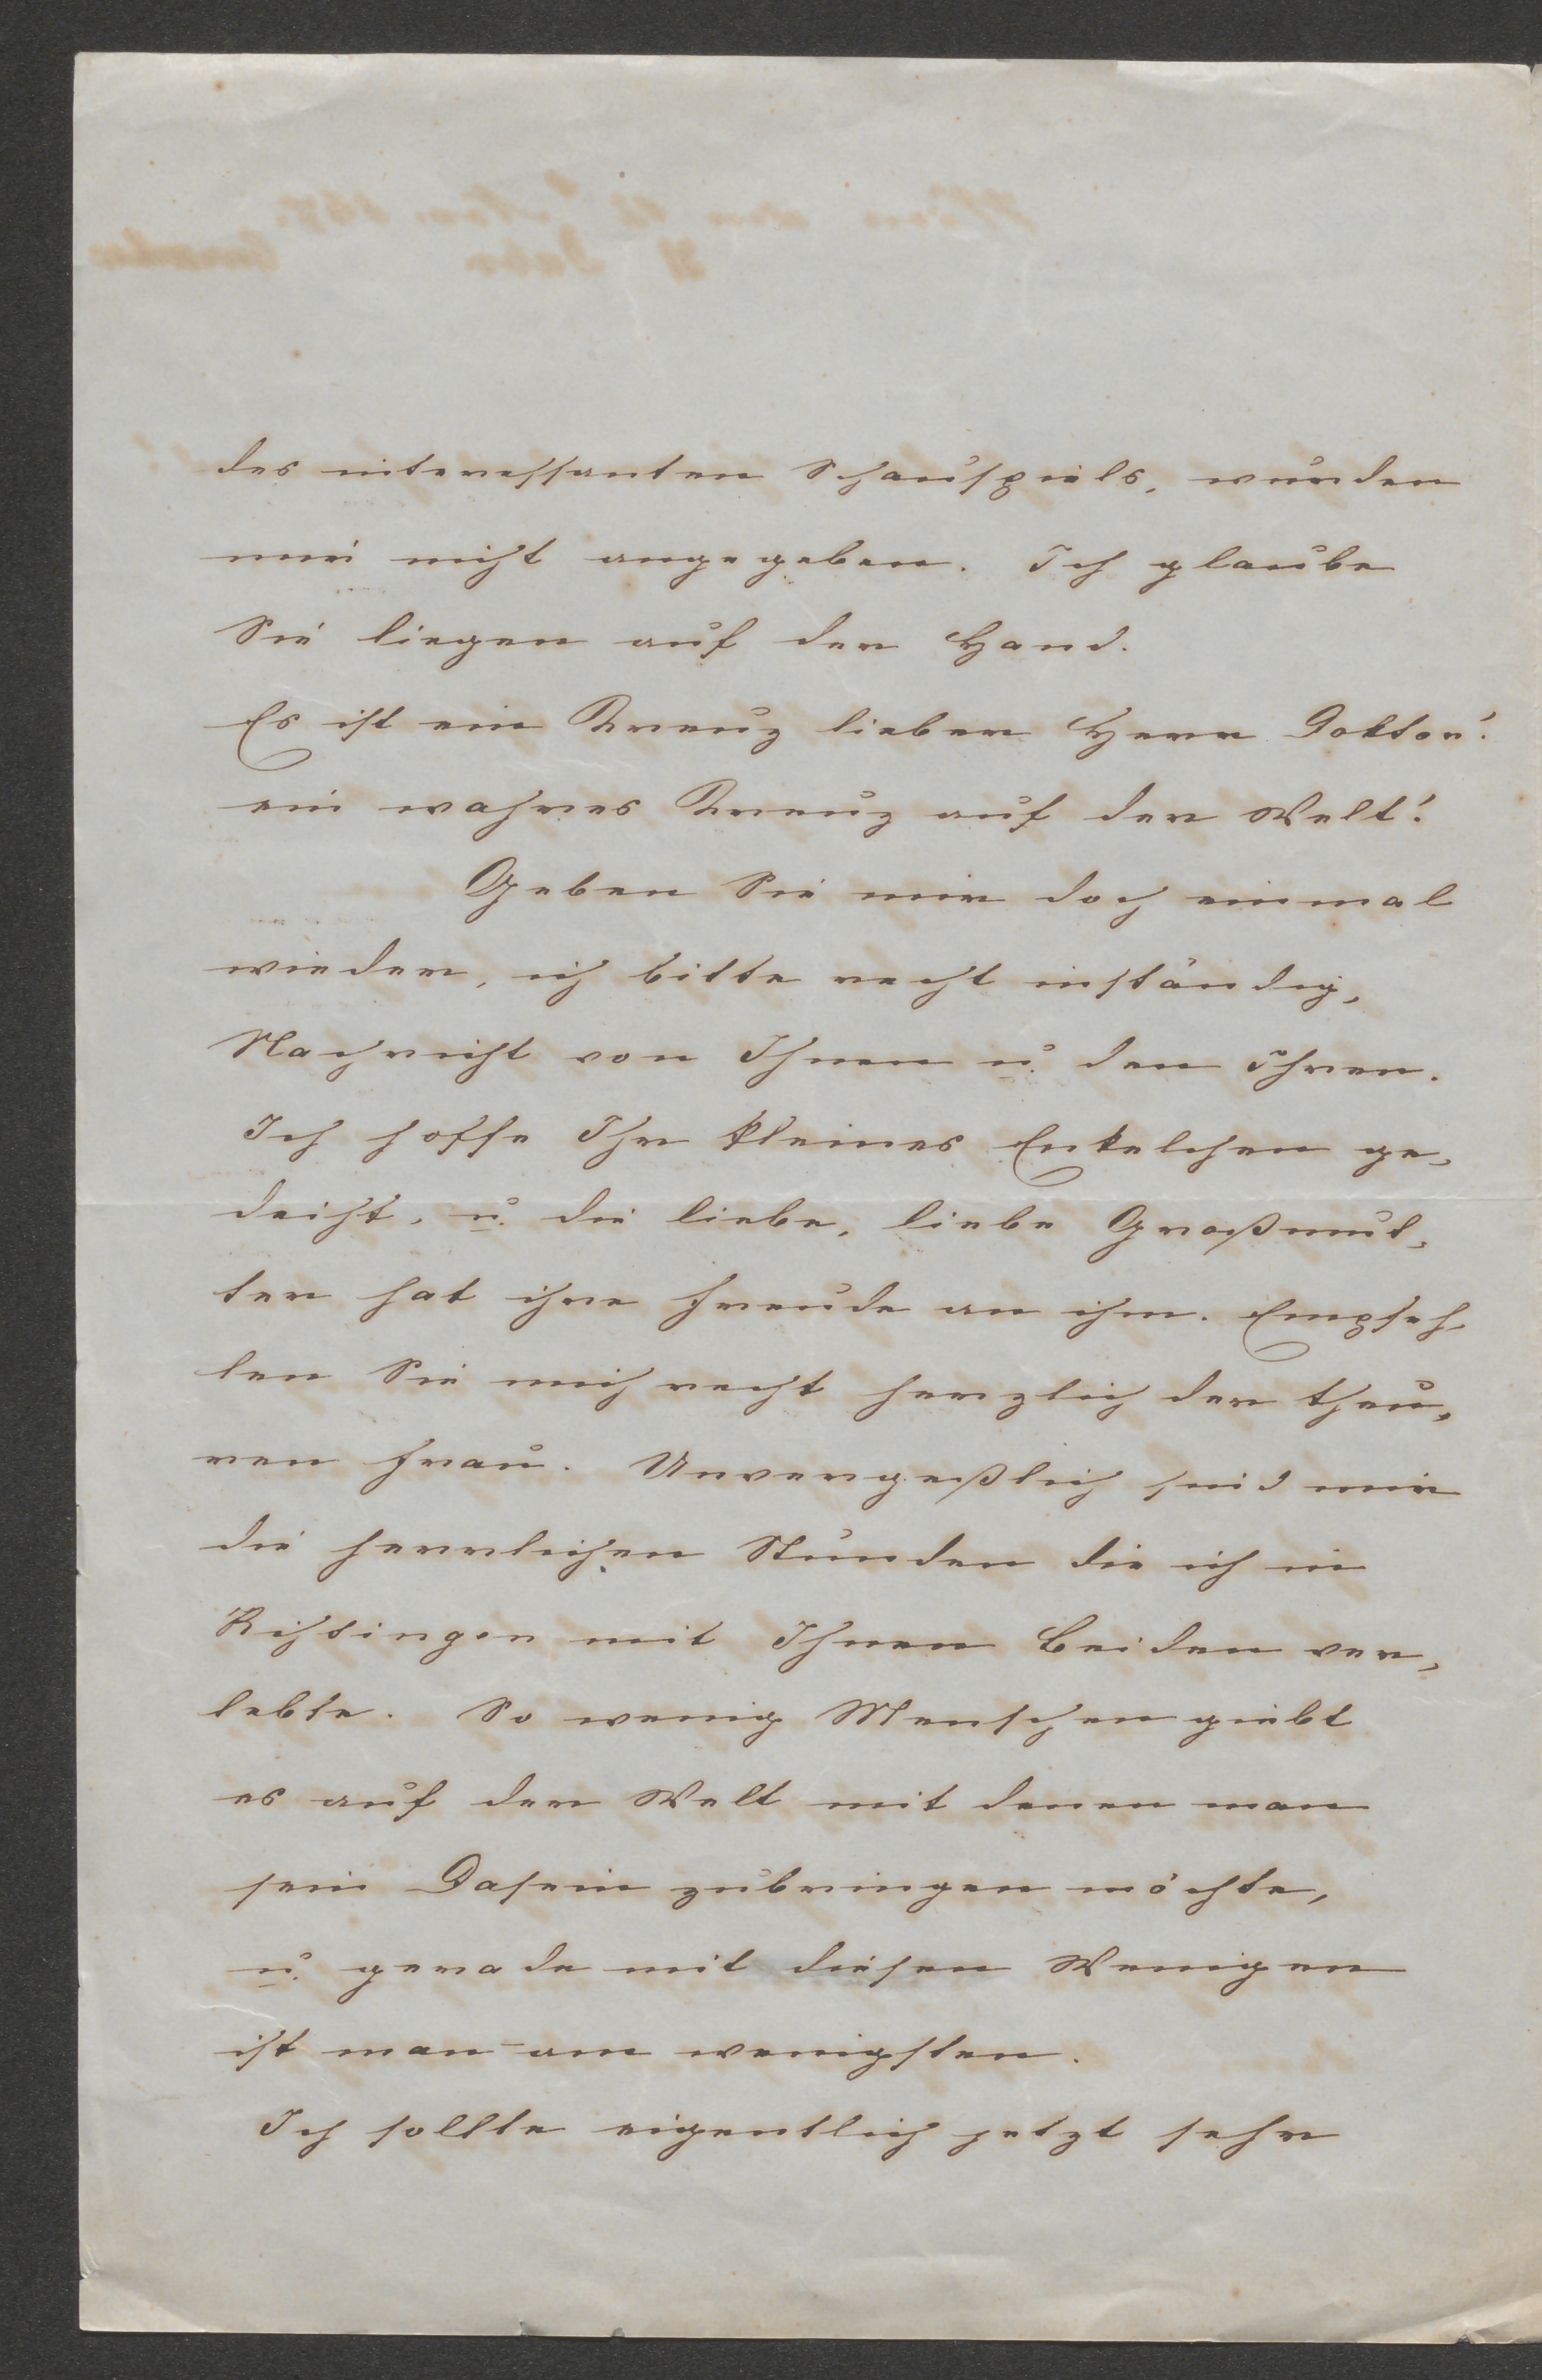 des interessanten Schauspiels, wurden
mir nicht angegeben. Ich glaube
Sie liegen auf der Hand.
Es ist ein Kreuz lieber Herr Doktor!
ein wahres Kreuz auf der Welt!
Geben Sie mir doch einmal
wieder, ich bitte recht inständig,
Nachricht von Ihnen u. den Ihren.
Ich hoffe Ihr kleines Enkelchen ge-
deiht, u. die liebe, liebe Großmut-
ter hat ihre Freude an ihm. Empfeh-
len Sie mich recht herzlich der theu-
ren Frau. Unvergeßlich sind mir
die herrlichen Stunden die ich in
mit Ihnen Beiden ver-
lebte. So wenig Menschen giebt
es auf der Welt mit denen man
sein Dasein zubringen möchte,
u. gerade mit diesen Wenigen
ist man am wenigsten.
Ich sollte eigentlich jetzt sehr